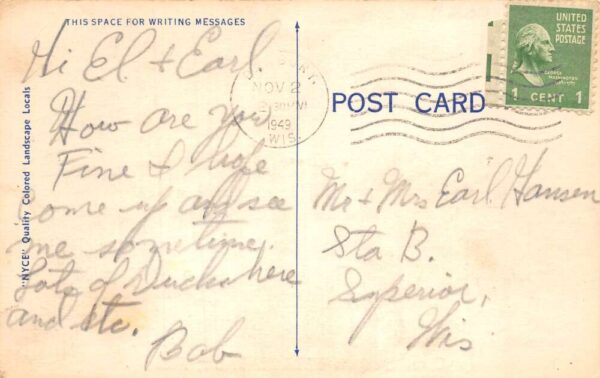 THIS SPACE FOR WRITING MESSAGES
Hi El + Earl.
How are you
Fine I hope
Come up and see
me sometime.
Lots of Ducks here
and etc.
Bob
"NYCE" Quality Colored Landscape Locals
NOV 2
1949
WIS.
POST CARD
UNITED
STATES
POSTAGE
GEORGE
WASHINGTON
1 CENT 1
Mr + Mrs Earl Hansen
Sta B.
Superior,
Wis